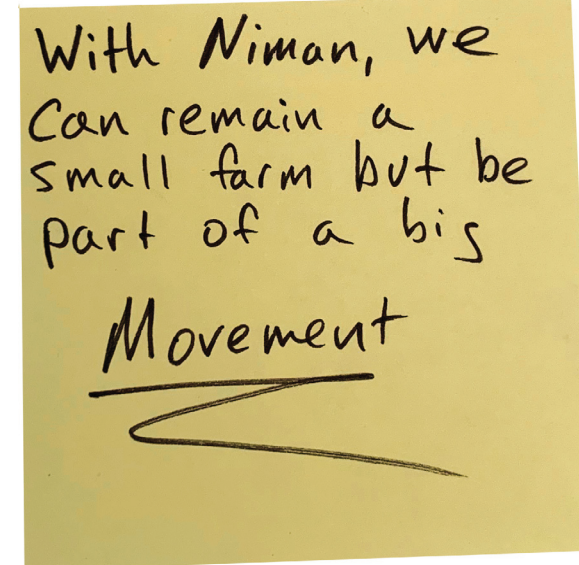 With Niman, we
Can remain a
small farm but be
part of a big
Movement